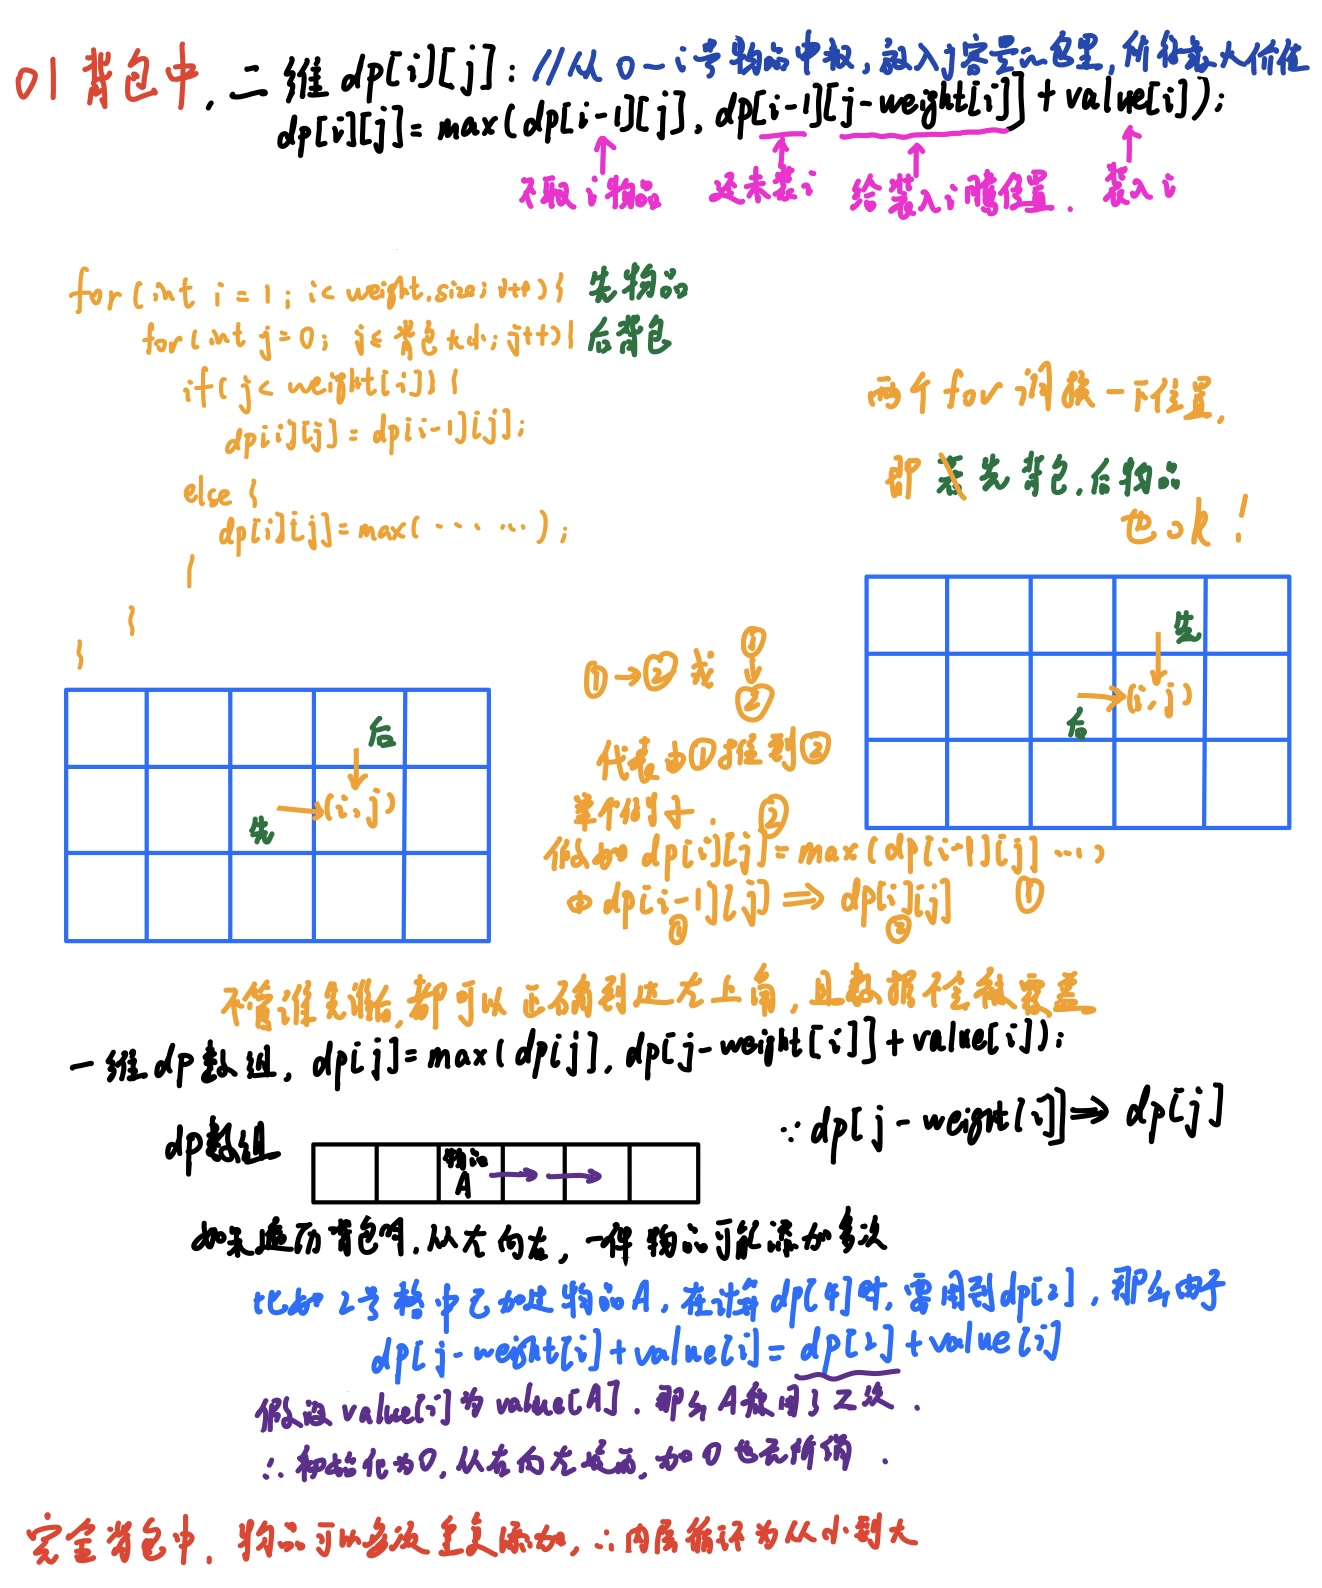 01背包中, 二维 dp[i][j]: //从 0-i号物品中取, 放入j容量的包里, 所得最大价值
dp[i][j]= max(dp[i-1][j], dp[i-1][j-weight[i]] + value[i]);
不取i物品 还未装i 给装入i腾位置. 装入i
for(int i = 1; i< weight.size; i++){ 先物品
for(int j=0; j≤ 背包大小; j++){ 后背包
if( j< weight[i]) {
dp[i][j] = dp[i-1][j];
else {
dp[i][j]=max( ... ... );
}
}
}
两个for调换一下位置,
即 先背包,后物品
也ok!
先
(i,j)
后
①→②或 ① ↓ ②
后
(i,j)
先
代表由①推到②
单个例子. ②
假如 dp[i][j]=max(dp[i-1][j] ...)
中 dp[i-1][j] ⇒ dp[i][j] ①
① ②
不管谁先谁后,都可以正确利用左上角, 且数据不会被覆盖
一维dp数组, dp[j]=max( dp[j], dp[j-weight[i]]+value[i]);
∵ dp[j-weight[i]]⇒ dp[j]
dp数组
物品
A
如果遍历背包时,从左向右, 一件物品可能添加多次
比如 2号格中已加过物品A, 在计算dp[4]时, 要用到dp[2], 那么由于
dp[j-weight[i]+value[i]= dp[2]+value[i]
假设value[i]为value[A]. 那么A被用了2次.
∴ 初始化为0, 从右向左遍历, 加0也无所谓.
完全背包中, 物品可以多次重复添加, ∴内层循环为从小到大